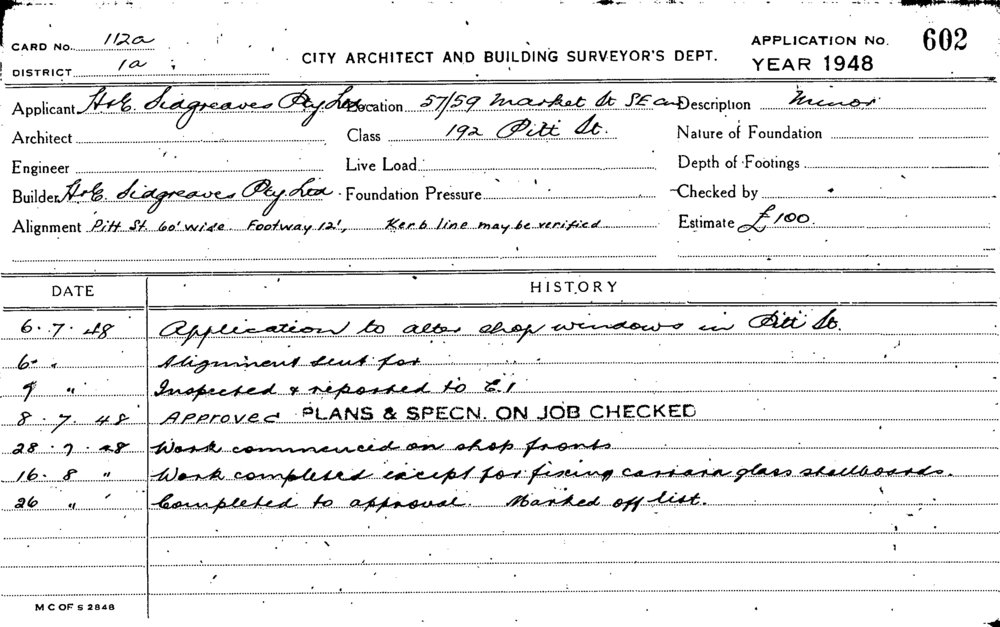 CARD No. 112a
DISTRICT 1a
CITY ARCHITECT AND BUILDING SURVEYOR'S DEPT.
APPLICATION No. 602
YEAR 1948
Applicant H & E. Sidgreaves Pty Ltd Location 57/59 Market St SE cnr Description Minor
Architect Class 192 Pitt St. Nature of Foundation
Engineer Live Load Depth of Footings
Builder H & E. Sidgreaves Pty Ltd Foundation Pressure Checked by
Alignment Pitt St 60' wide Footway 12', Kerb line may be verified Estimate £100.
DATE HISTORY
6.7.48 Application to alter shop windows in Pitt St.
6 " Alignment sent for
9 " Inspected & reported to C.I
8.7.48 Approved PLANS & SPECN. ON JOB CHECKED
28.7.48 Work commenced on shop fronts
16.8 " Work completed except for fixing carrara glass stallboards.
26 " Completed to approval. Marked off list.
M C OF S 2848